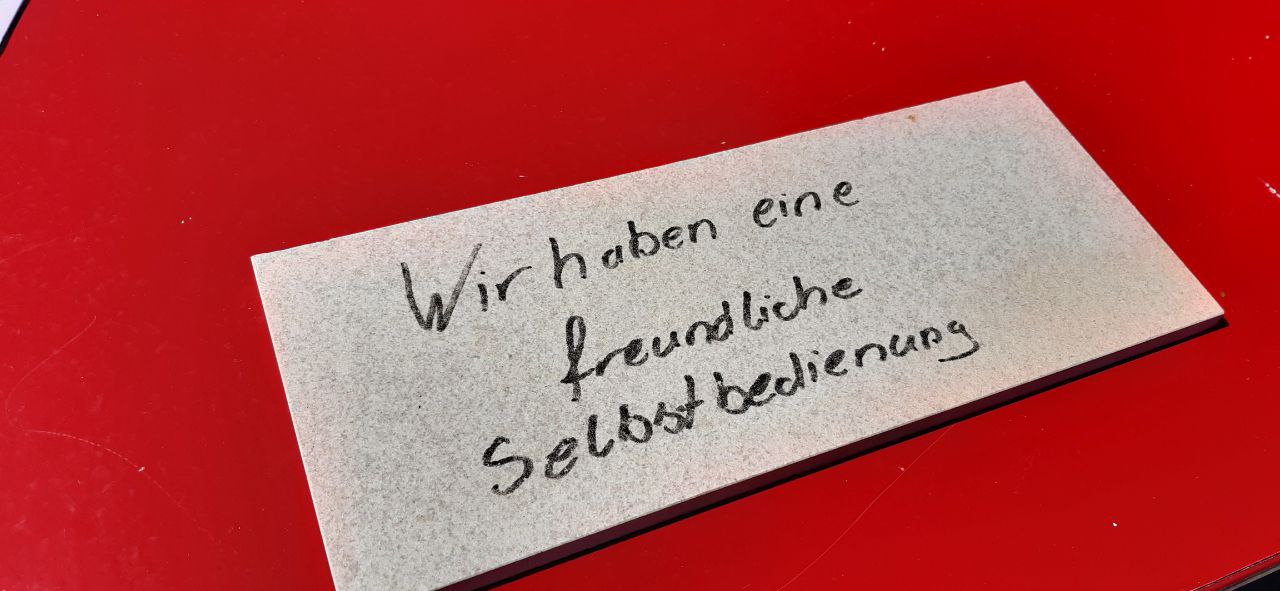 Wir haben eine
freundliche
Selbstbedienung